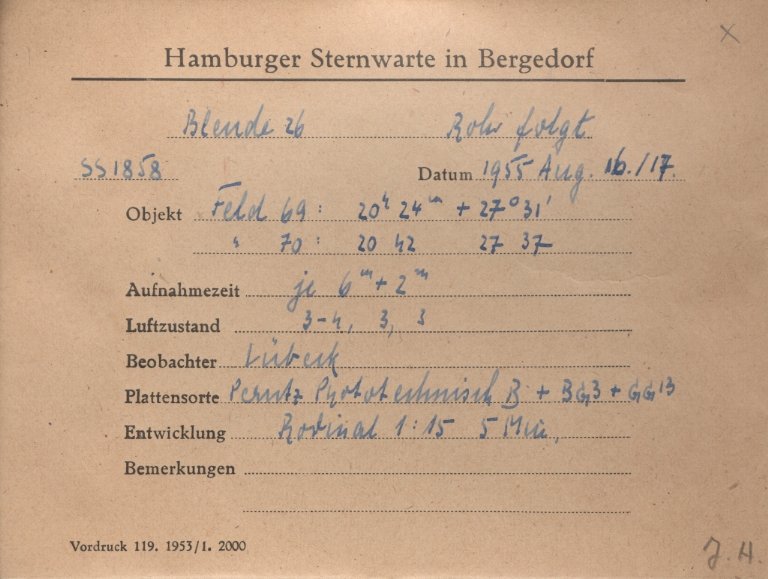 Hamburger Sternwarte in Bergedorf
Blende 26 Rohr folgt
SS1858 Datum 1955 Aug. 16./17.
Objekt Feld 69: 20ʰ 24ᵐ + 27° 31'
" 70: 20 42 27 37
Aufnahmezeit je 6ᵐ + 2ᵐ
Luftzustand 3-4, 3, 3
Beobachter Lübeck
Plattensorte Perutz Phototechnisch B + BG3 + GG13
Entwicklung Rodinal 1:15 5 Min.
Bemerkungen
Vordruck 119. 1953/1. 2000
J. H.